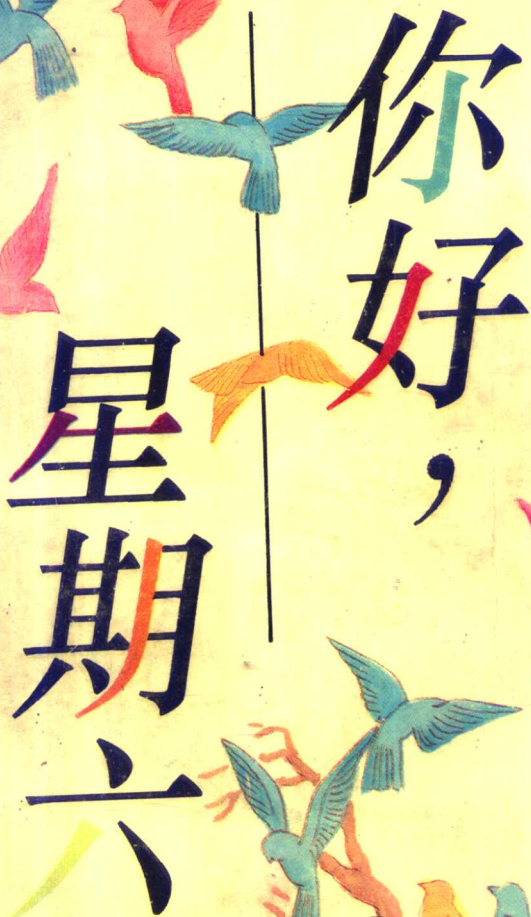 你好，
星期六